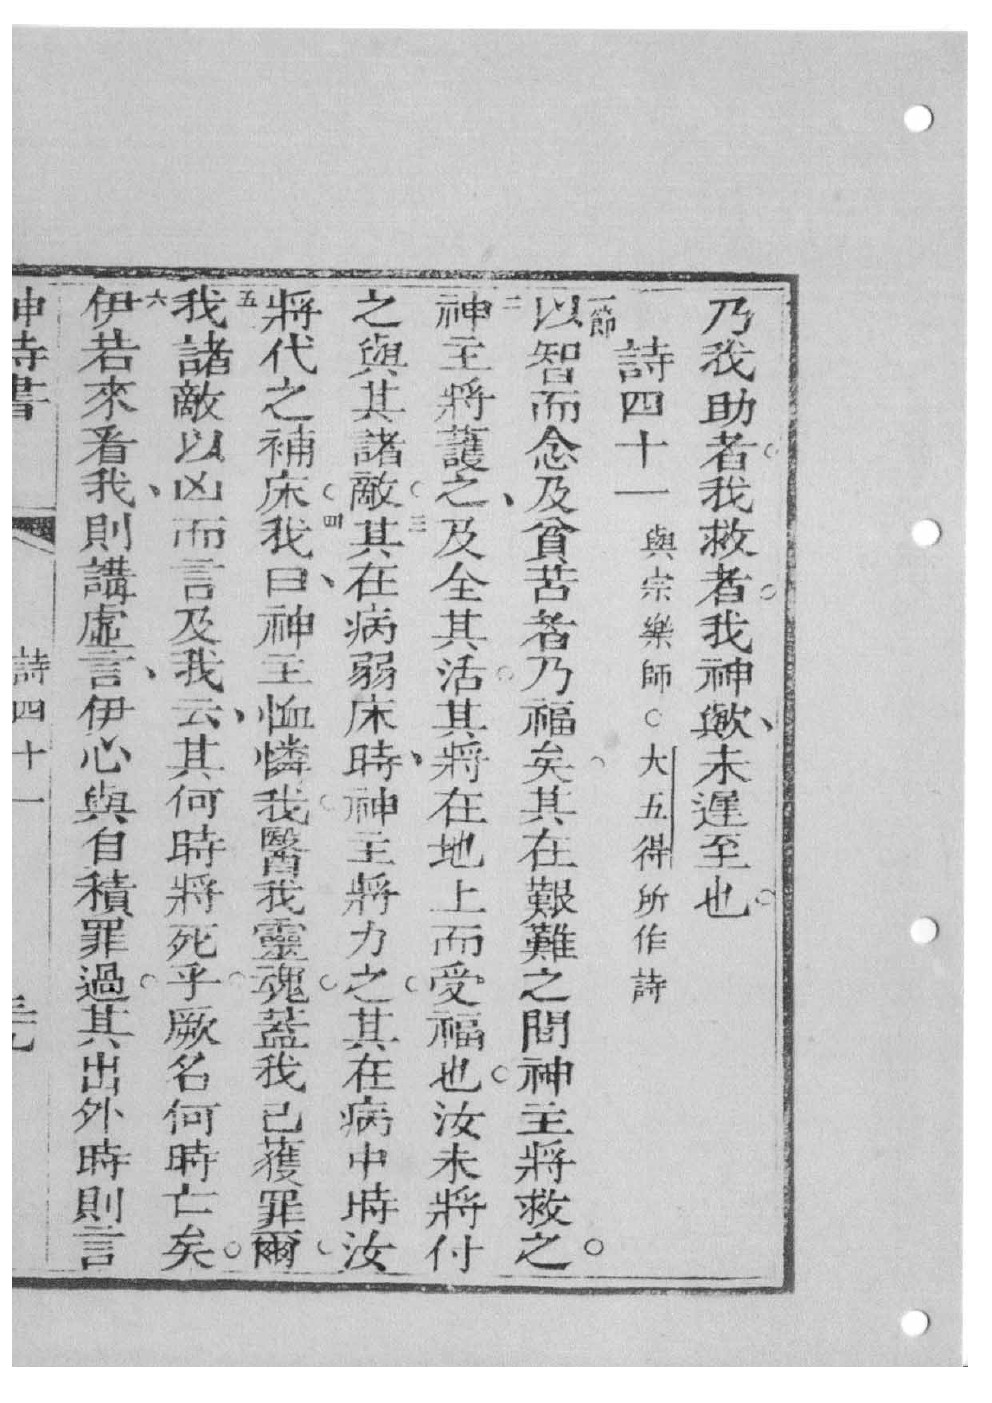 乃我助者。我救者。我神歟、未遲至也。
詩四十一 與宗樂師。大五得所作詩
一節以智而念及貧苦者乃福矣。其在艱難之間神主將救之。
二神主將護之、及全其活。其將在地上而受福也。汝未將付
之與其諸敵。三其在病弱床時、神主將力之。其在病中時汝
將代之補床。四我曰、神主恤憐我。醫我靈魂。蓋我已獲罪爾。
五我諸敵以凶而言及我云、其何時將死乎。厥名何時亡矣。
六伊若來看我、則講虛言、伊心與自積罪過。其出外時則言
神詩書 詩四十一